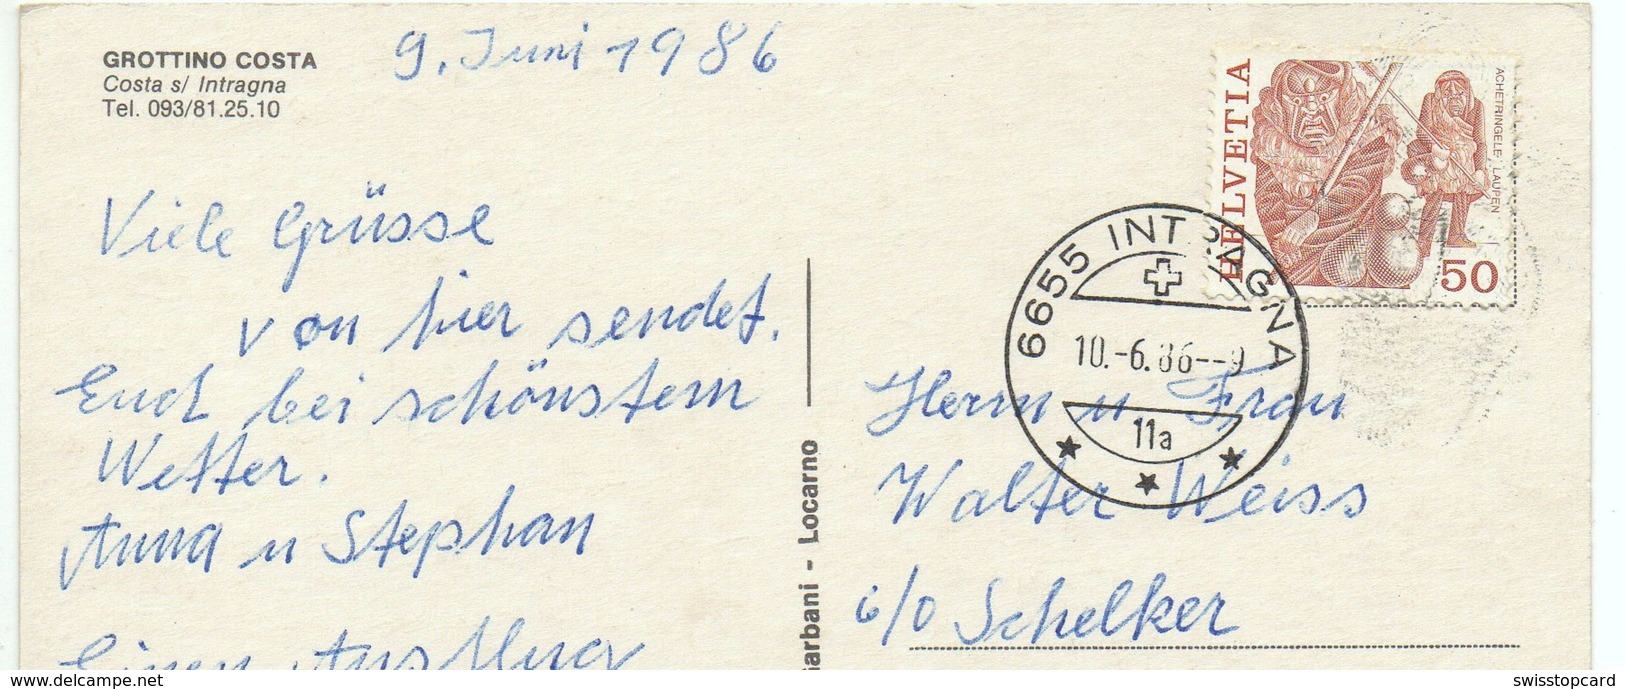 GROTTINO COSTA
Costa s/ Intragna
Tel. 093/81.25.10
9. Juni 1986
Viele Grüsse
von hier sendet
Euch bei schönstem
Wetter.
Anna u Stephan
Einen Ausflug
Garbani - Locarno
HELVETIA
ACHETRINGELE LAUPEN
50
6655 INTRAGNA
10.-6.86--9
11a
Herrn u Frau
Walter Weiss
i/o Schelker
www.delcampe.net
swisstopcard